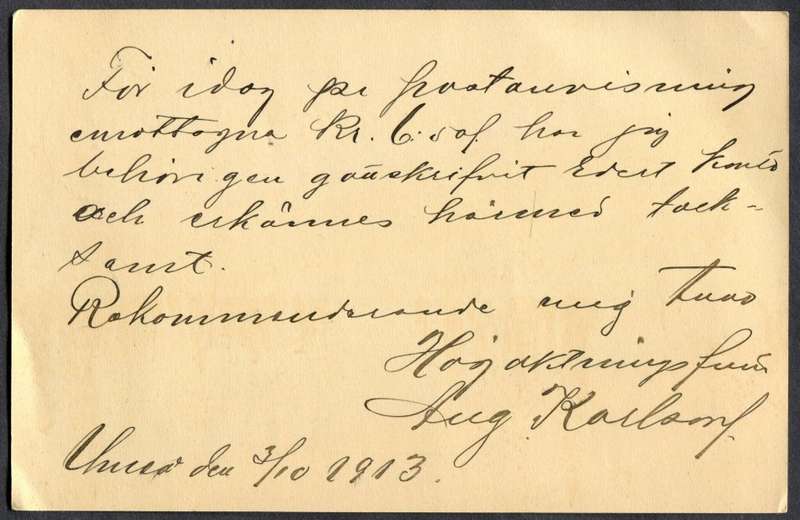 För idag pr postanvisning
emottagna Kr. 6:50/ har jag
behörigen godtskrifvit Edert konto
och erkännes härmed tack-
samt.
Rekommenderande mig
Högaktningsfull
Aug. Karlsson
Umeå den 3/10 1913.